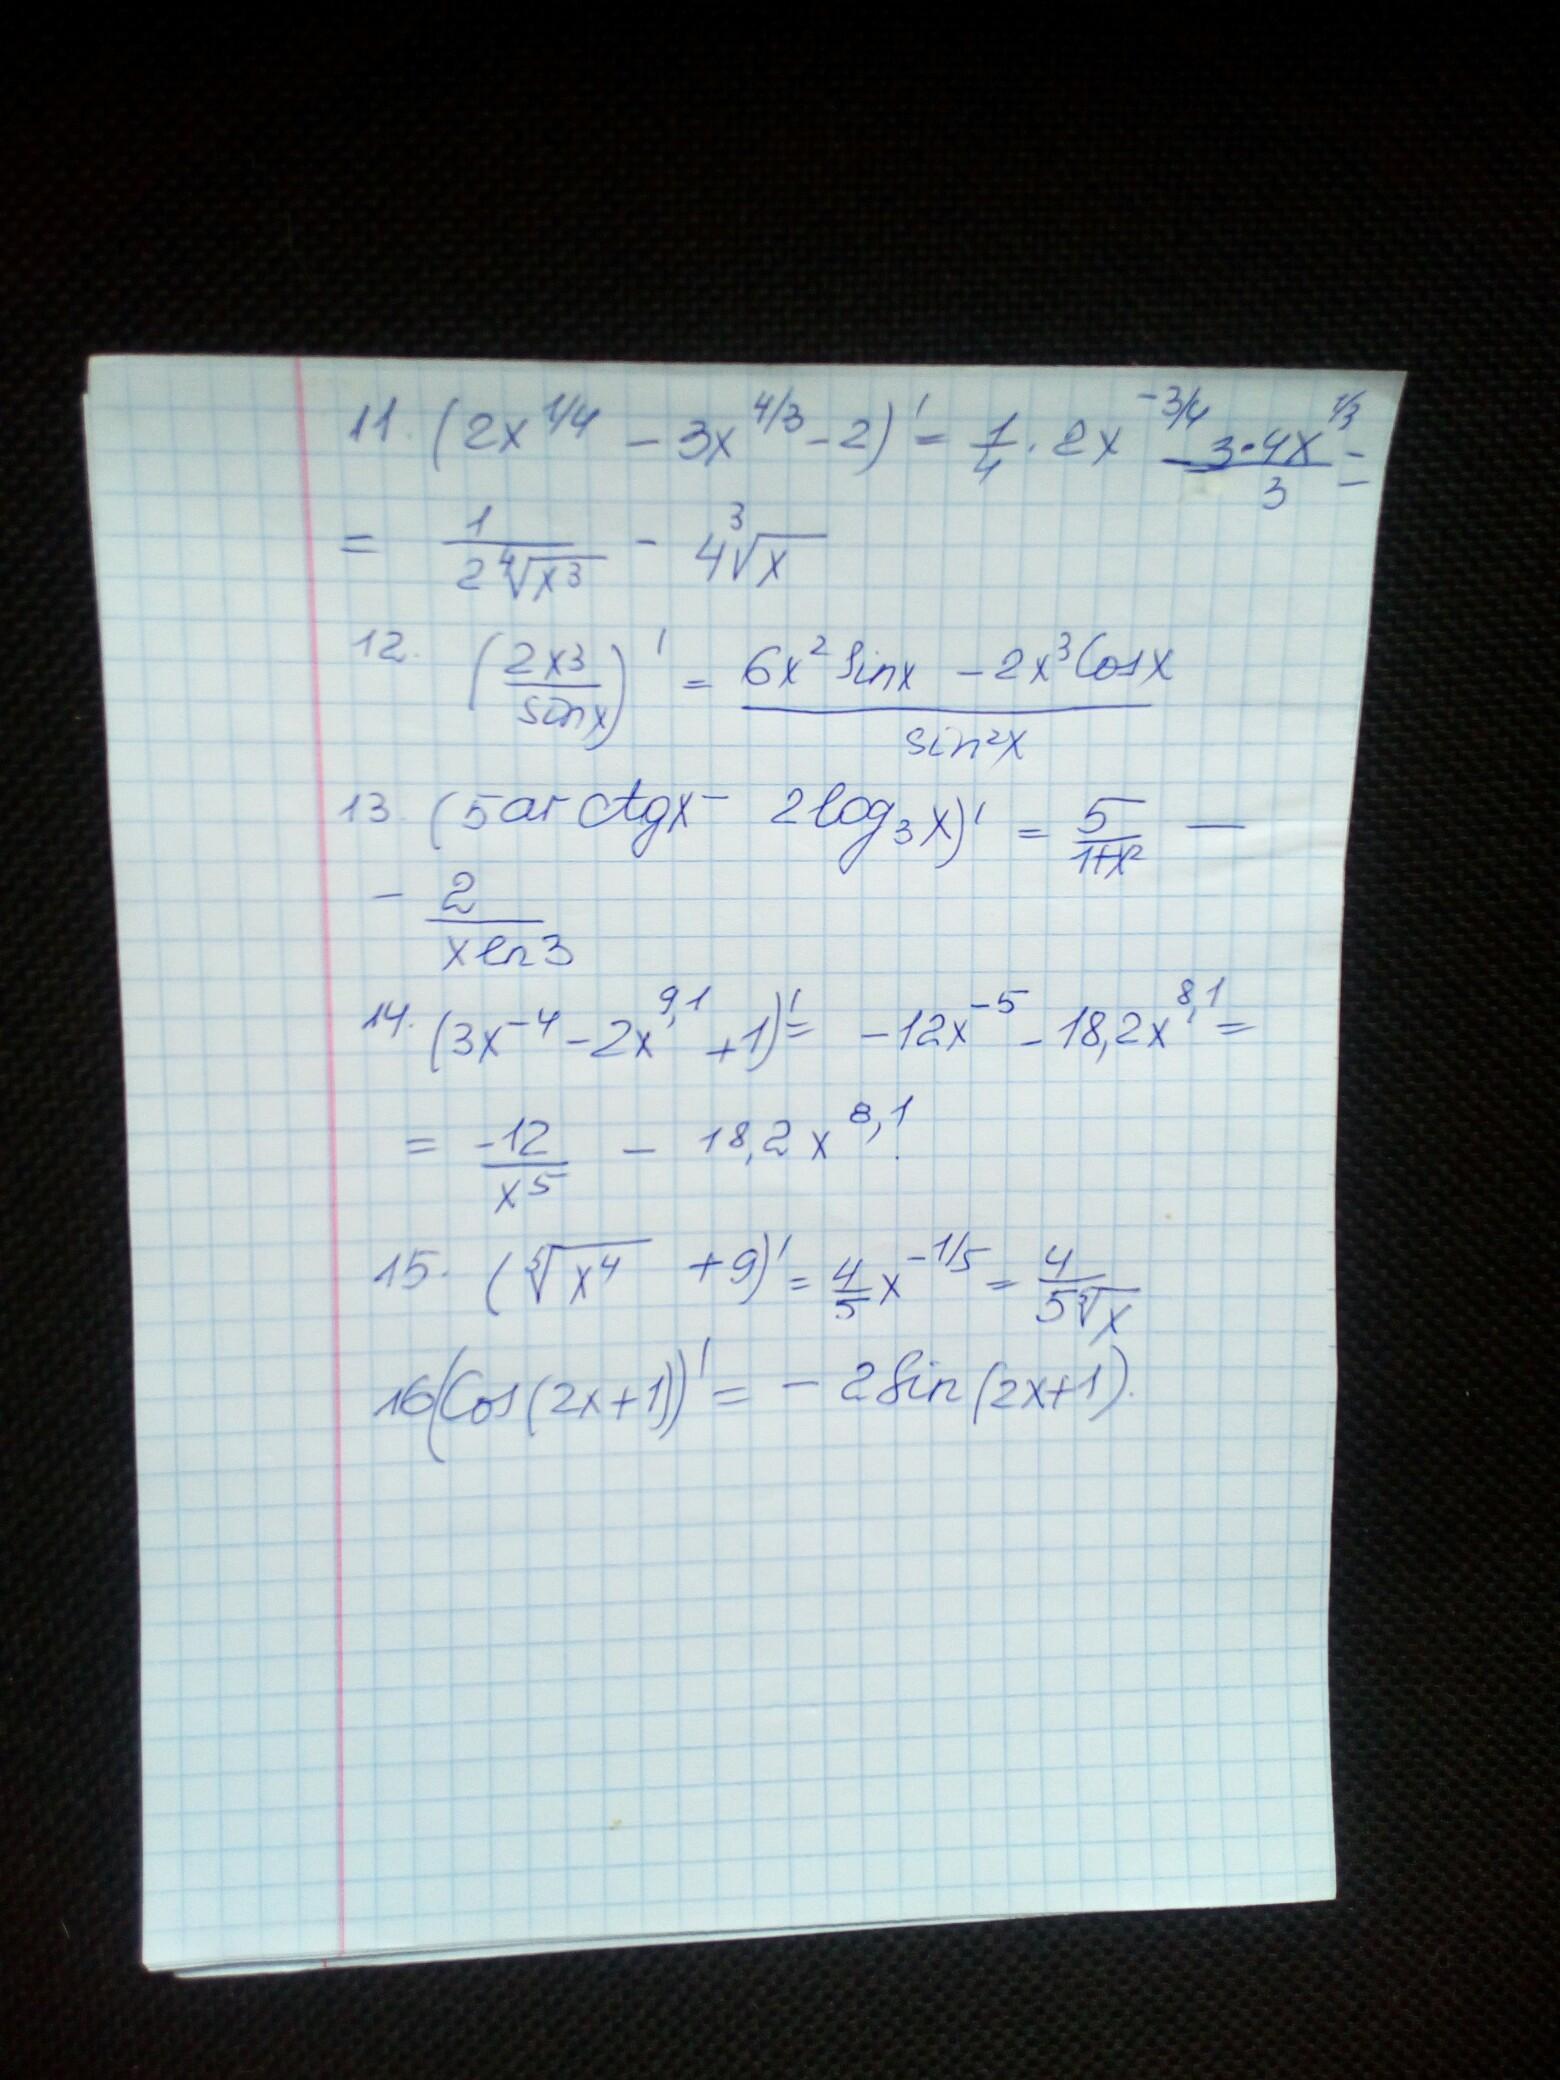 11. (2x^{1/4} - 3x^{4/3} - 2)' = \frac{1}{4} · 2x^{-3/4} - \frac{3·4x^{1/3}}{3} =
= \frac{1}{2\sqrt[4]{x^3}} - 4\sqrt[3]{x}
12. (\frac{2x^3}{sin x})' = \frac{6x^2 sin x - 2x^3 Cos x}{sin^2 x}
13. (5 arctg x - 2 log_3 x)' = \frac{5}{1+x^2} -
- \frac{2}{x ln 3}
14. (3x^{-4} - 2x^{9,1} + 1)' = -12x^{-5} - 18,2x^{8,1} =
= \frac{-12}{x^5} - 18,2x^{8,1}.
15. (\sqrt[5]{x^4} + 9)' = \frac{4}{5}x^{-1/5} = \frac{4}{5\sqrt[5]{x}}
16 (Cos(2x+1))' = -2 Sin(2x+1).